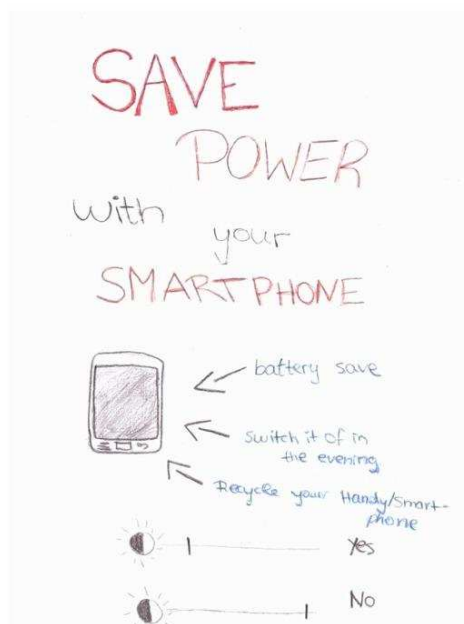 SAVE
POWER
with
your
SMARTPHONE
battery save
Switch it of in
the evening
Recycle your Handy/Smart-
phone
Yes
No